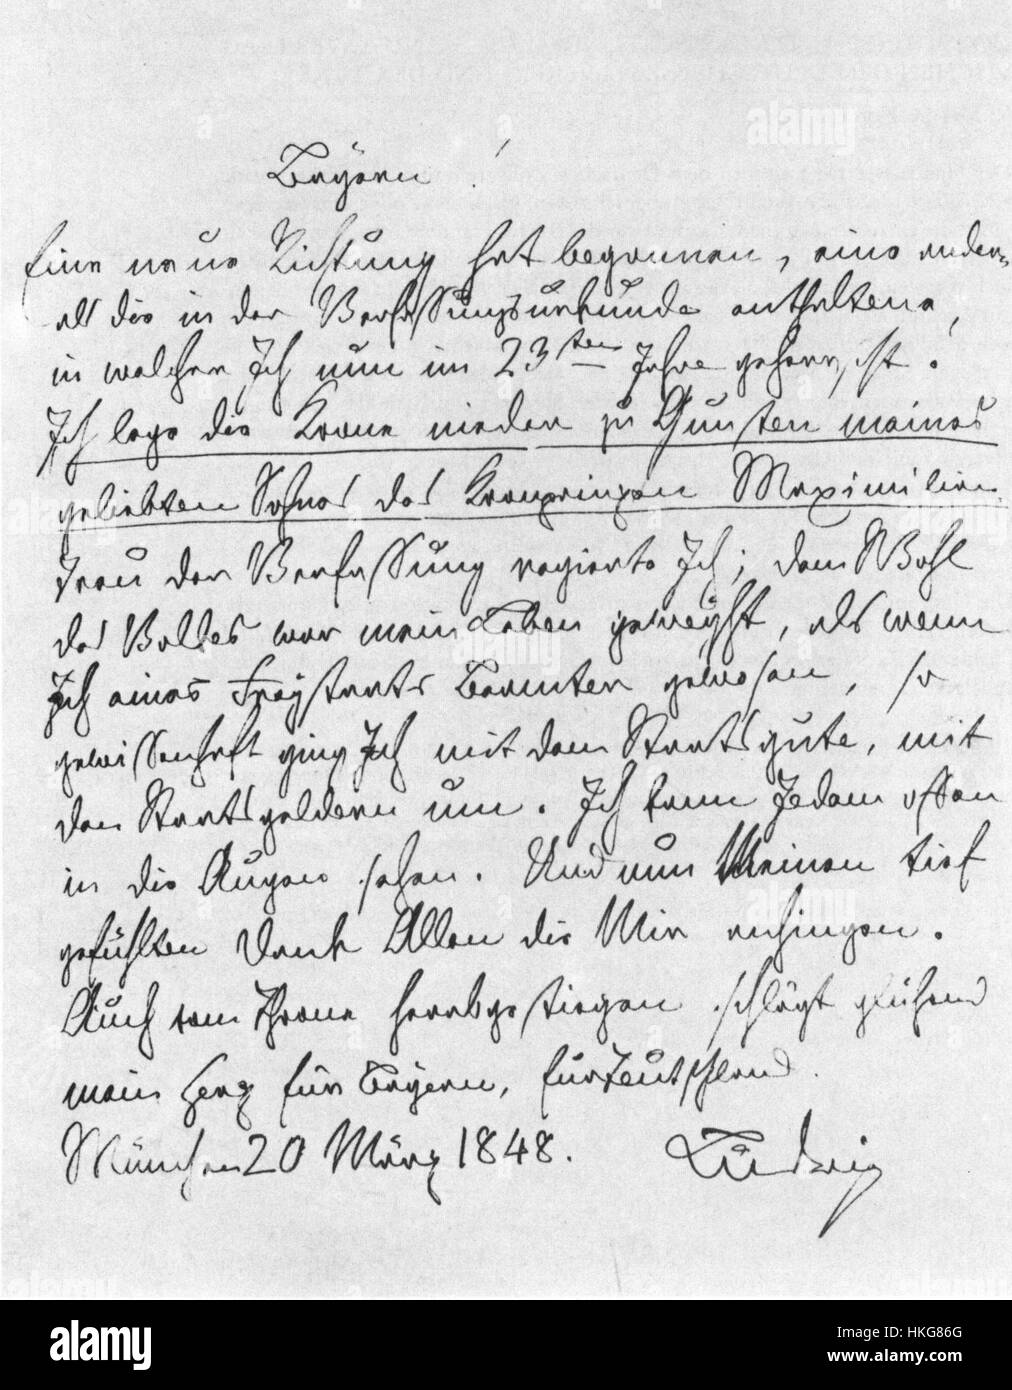 Bayern!
Eine neue Richtung hat begonnen, eine andere
als die in der Verfassungsurkunde enthaltene,
in welcher Ich nun im 23sten Jahre geherrscht.
Ich lege die Krone nieder zu Gunsten meines
geliebten Sohnes des Kronprinzen Maximilian.
Treu der Verfassung regierte Ich; dem Wohl
des Volkes war mein Leben geweyht, als wenn
Ich eines Freystaats Beamter gewesen, so
gewissenhaft ging Ich mit dem Staatsgute, mit
den Staatsgeldern um. Ich kann Jedem offen
in die Augen sehen. Und nun Meinen tief
gefühlten Dank Allen die Mir anhingen.
Auch vom Throne herabgestiegen schlägt glühend
mein Herz für Bayern, für Teutschland.
München 20 März 1848. Ludwig
alamy
Image ID: HKG86G
www.alamy.com